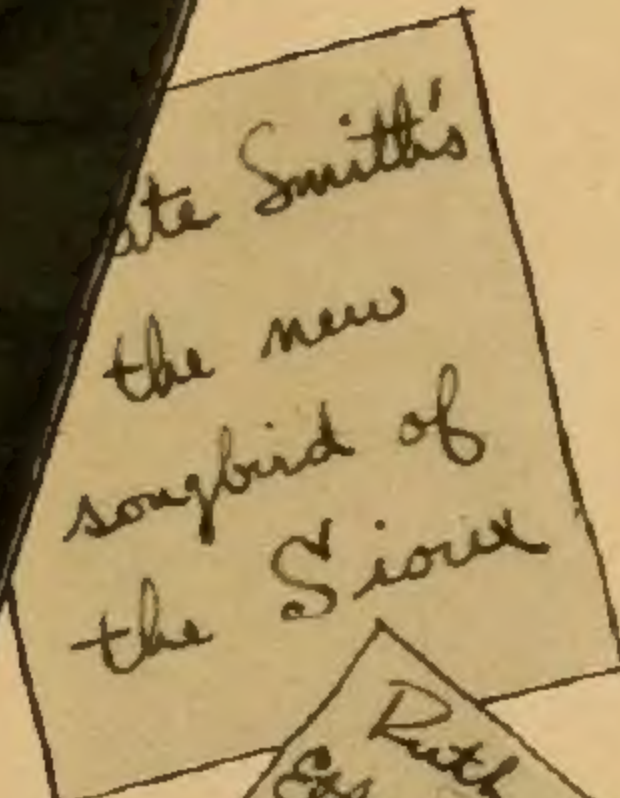 ate Smith's
the new
songbird of
the Sioux
Ruth